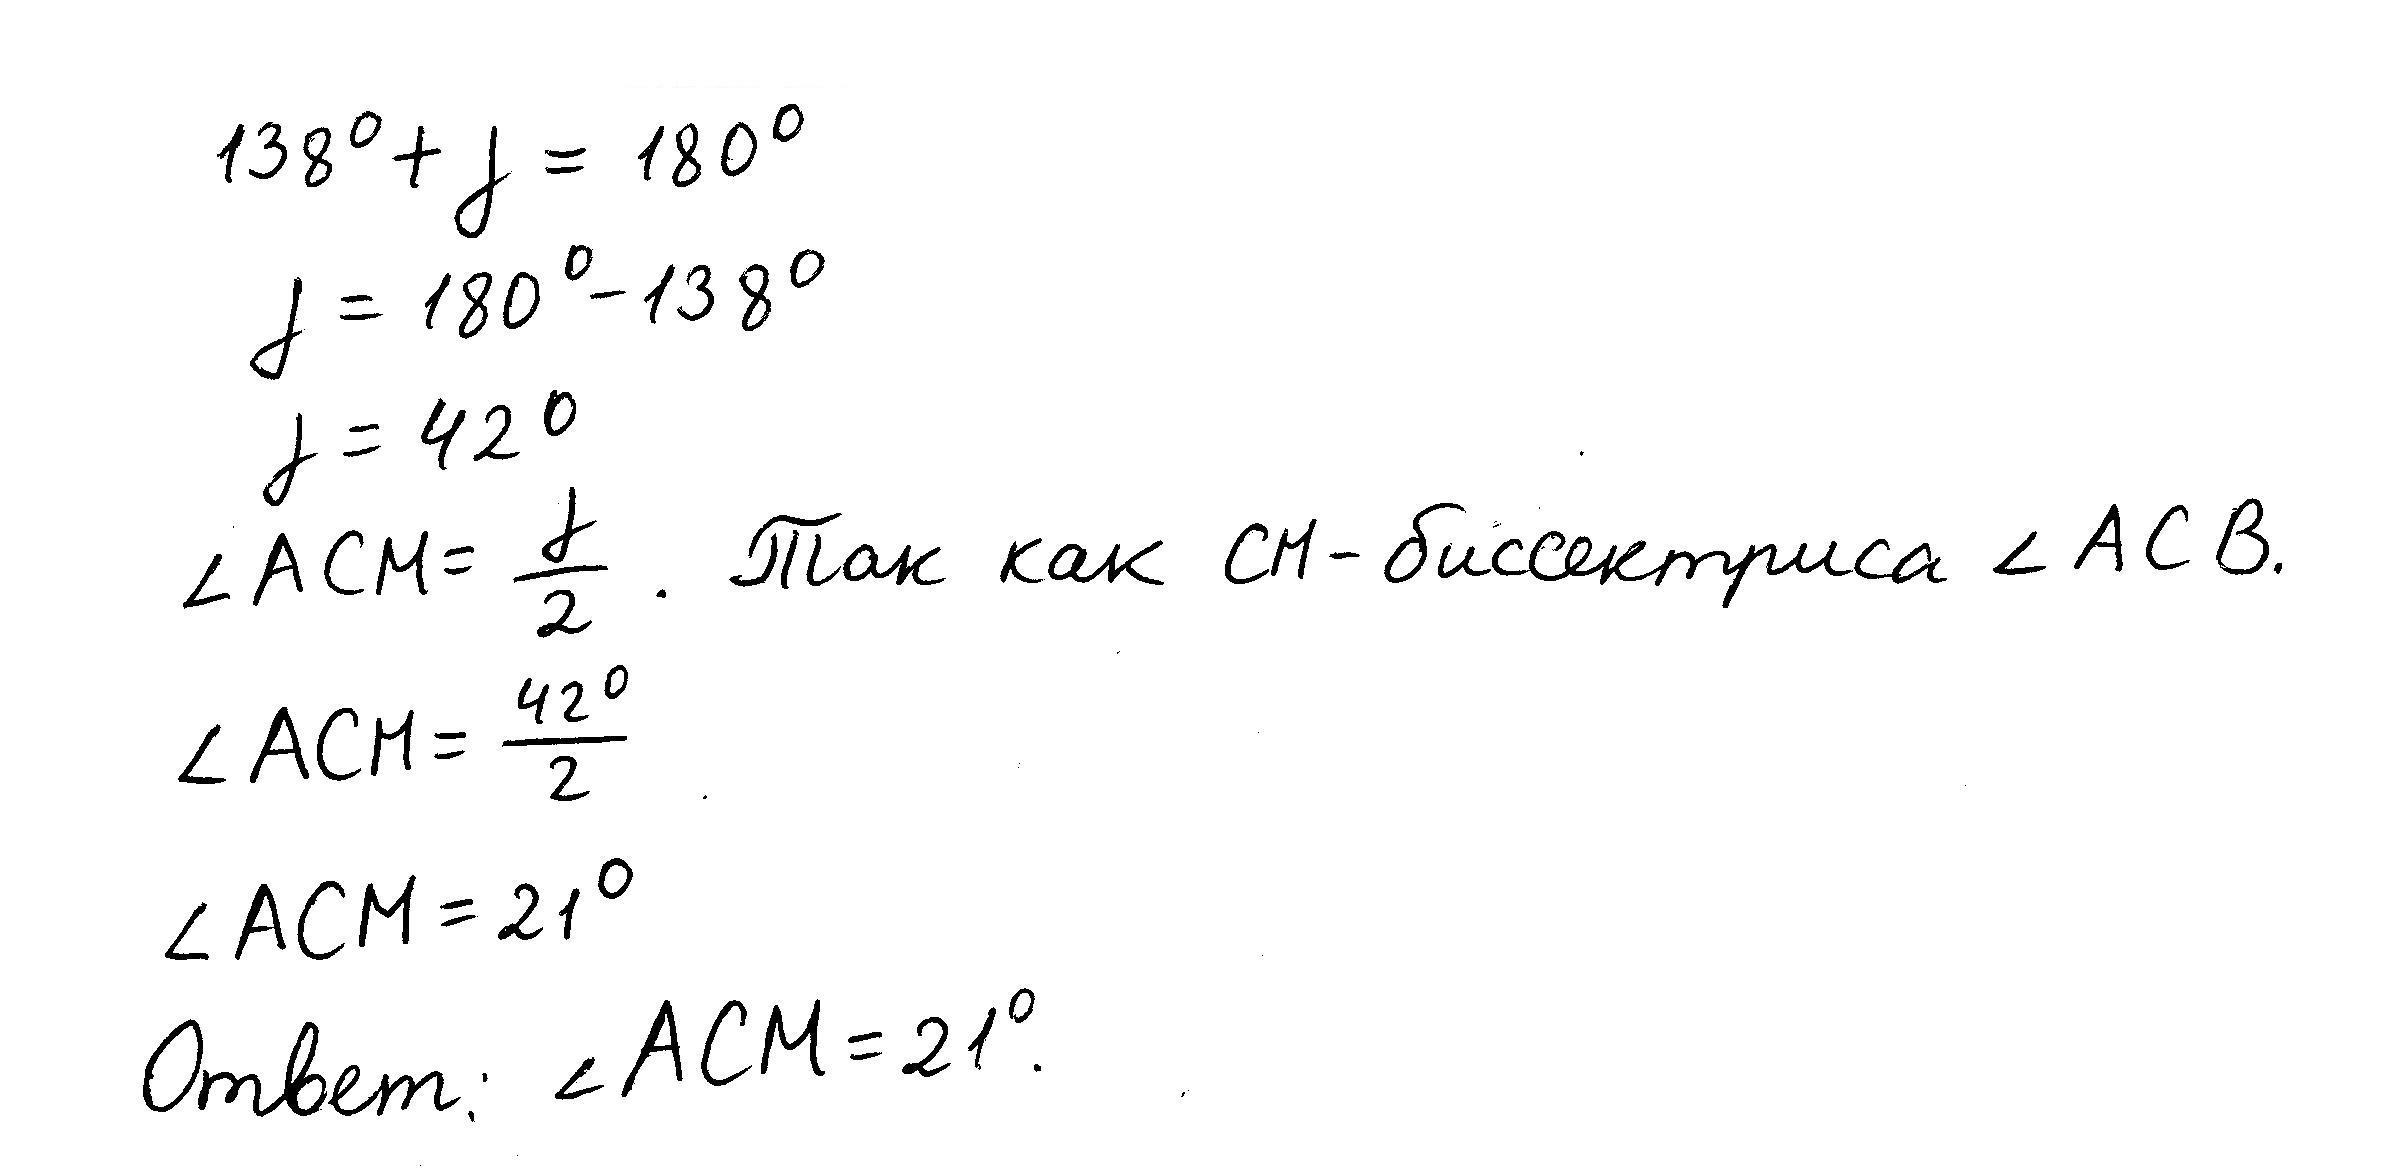 138° + γ = 180°
γ = 180° - 138°
γ = 42°
∠ACM = γ/2. Так как CM - биссектриса ∠ACB.
∠ACM = 42°/2
∠ACM = 21°
Ответ: ∠ACM = 21°.